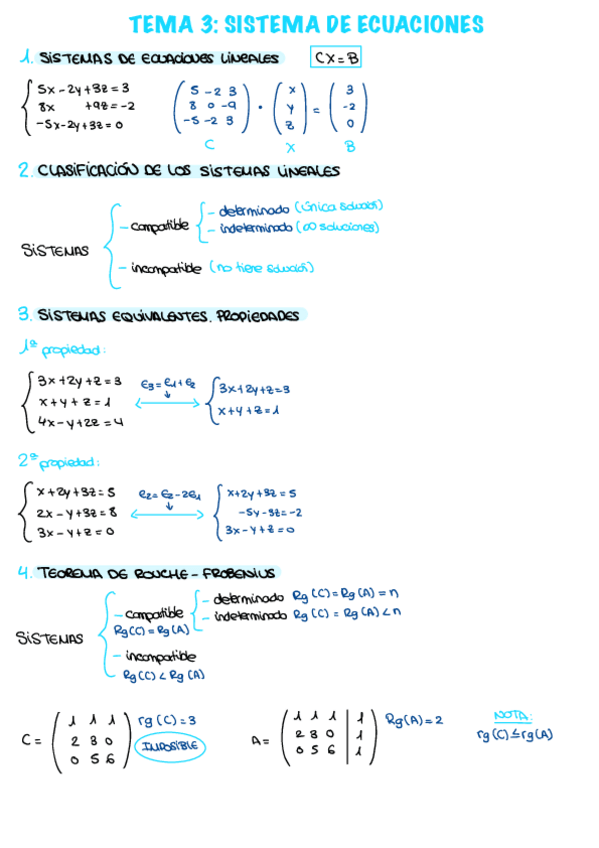 TEMA 3: SISTEMA DE ECUACIONES
1. SISTEMAS DE ECUACIONES LINEALES CX=B
5x-2y+3z=3
8x +9z=-2
-5x-2y+3z=0
5 -2 3 x 3
8 0 -9 · y = -2
-5 -2 3 z 0
C X B
2. CLASIFICACIÓN DE LOS SISTEMAS LINEALES
SISTEMAS
- compatible
- determinado (única solución)
- indeterminado (∞ soluciones)
- incompatible (no tiene solución)
3. SISTEMAS EQUIVALENTES. PROPIEDADES
1ª propiedad:
3x+2y+z=3
x+y+z=1
4x-y+2z=4
e3=e1+e2
3x+2y+z=3
x+y+z=1
2ª propiedad:
x+2y+3z=5
2x-y+3z=8
3x-y+z=0
e2=e2-2e1
x+2y+3z=5
-5y-3z=-2
3x-y+z=0
4. TEOREMA DE ROUCHE-FROBENIUS
SISTEMAS
- compatible
Rg(C)=Rg(A)
- determinado Rg(C)=Rg(A)=n
- indeterminado Rg(C)=Rg(A)<n
- incompatible
Rg(C)<Rg(A)
C=
1 1 1
2 3 0
0 5 6
rg(C)=3
IMPOSIBLE
A=
1 1 1 | 1
2 3 0 | 1
0 5 6 | 1
Rg(A)=2
NOTA:
rg(C)≤rg(A)